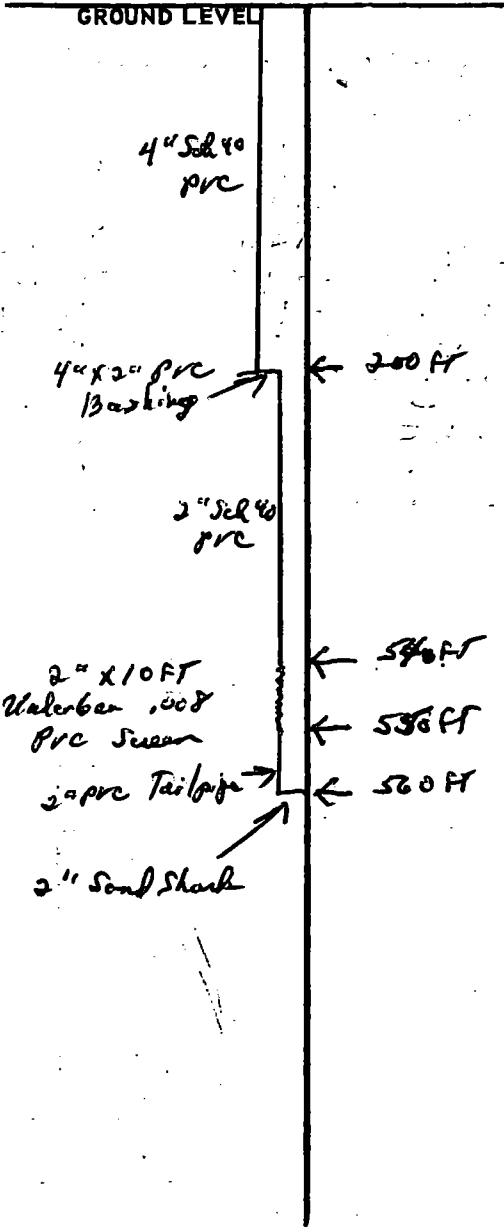 GROUND LEVEL
4" Sch 40
PVC
4" x 2" PVC
Bushing
200 FT
2" Sch 40
PVC
540 FT
2" x 10 FT
.008
PVC Screen
550 FT
2" PVC Tailpipe
560 FT
2" Sand Shark